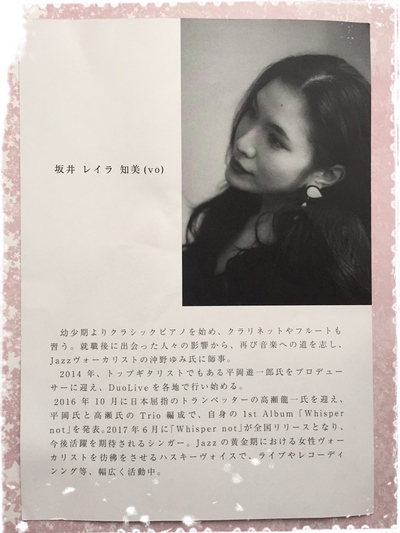 坂井 レイラ 知美(vo)
幼少期よりクラシックピアノを始め、クラリネットやフルートも
習う。就職後に出会った人々の影響から、再び音楽への道を志し、
Jazzヴォーカリストの沖野ゆみ氏に師事。
2014 年、トップギタリストでもある平岡遊一郎氏をプロデュー
サーに迎え、DuoLiveを各地で行い始める。
2016 年 10 月に日本屈指のトランペッターの高瀬龍一氏を迎え、
平岡氏と高瀬氏の Trio 編成で、自身の 1st Album「Whisper
not」を発表。2017 年 6 月に「Whisper not」が全国リリースとなり、
今後活躍を期待されるシンガー。Jazz の黄金期における女性ヴォー
カリストを彷彿をさせるハスキーヴォイスで、ライブやレコーディ
ニング等、幅広く活動中。